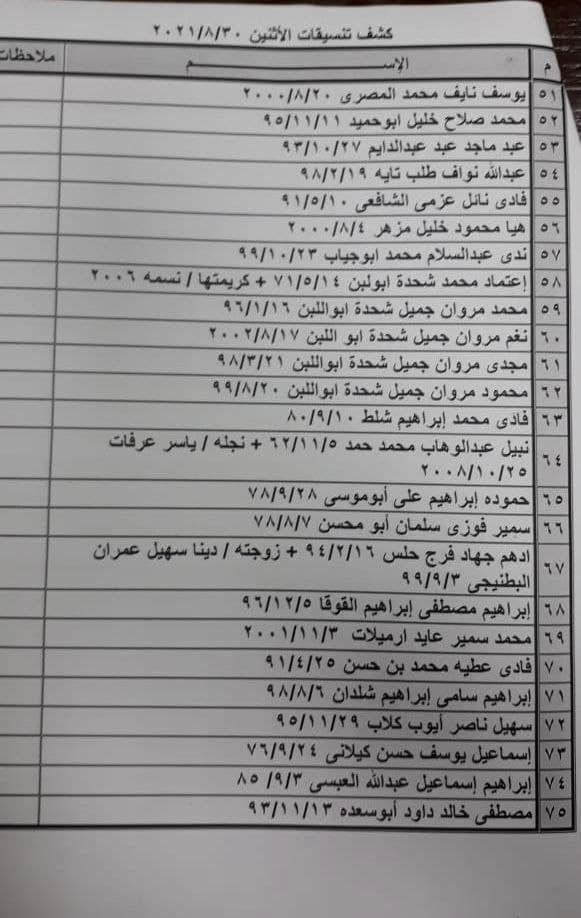 كشف تنسيقات الأثنين ٢٠٢١/٨/٣٠
م الإســــم ملاحظات
٥١ يوسف نايف محمد المصرى ٢٠٠٠/٨/٢٠
٥٢ محمد صلاح خليل ابوحميد ٩٥/١١/١١
٥٣ عبد ماجد عبد عبدالدايم ٩٣/١٠/٢٧
٥٤ عبدالله نواف طلب تايه ٩٨/٢/١٩
٥٥ فادى نائل عزمى الشافعى ٩١/٥/١٠
٥٦ هيا محمود خليل مزهر ٢٠٠٠/٨/٤
٥٧ ندى عبدالسلام محمد ابوجياب ٩٩/١٠/٢٣
٥٨ إعتماد محمد شحدة ابولبن ٧١/٥/١٤ + كريمتها / نسمه ٢٠٠٦
٥٩ محمد مروان جميل شحدة ابواللبن ٩٦/١/١٦
٦٠ نغم مروان جميل شحدة ابو اللبن ٢٠٠٢/٨/١٧
٦١ مجدى مروان جميل شحدة ابواللبن ٩٨/٣/٢١
٦٢ محمود مروان جميل شحدة ابواللبن ٩٩/٨/٢٠
٦٣ فادى محمد إبراهيم شلط ٨٠/٩/١٠
٦٤ نبيل عبدالوهاب محمد حمد ٦٢/١١/٥ + نجله / ياسر عرفات
٢٠٠٨/١٠/٢٥
٦٥ حموده إبراهيم على أبوموسى ٧٨/٩/٢٨
٦٦ سمير فوزى سلمان أبو محسن ٧٨/٨/٧
٦٧ ادهم جهاد فرج حلس ٩٤/٢/١٦ + زوجته / دينا سهيل عمران
البطنيجى ٩٩/٩/٣
٦٨ إبراهيم مصطفى إبراهيم القوقا ٩٦/١٢/٥
٦٩ محمد سمير عايد ارميلات ٢٠٠١/١١/٣
٧٠ فادى عطيه محمد بن حسن ٩١/٤/٢٥
٧١ إبراهيم سامى إبراهيم شلدان ٩٨/٨/٦
٧٢ سهيل ناصر أيوب كلاب ٩٥/١١/٢٩
٧٣ إسماعيل يوسف حسن كيلانى ٧٦/٩/٢٤
٧٤ إبراهيم إسماعيل عبدالله العبسى ٨٥/٩/٣
٧٥ مصطفى خالد داود أبوسعده ٩٣/١١/١٣